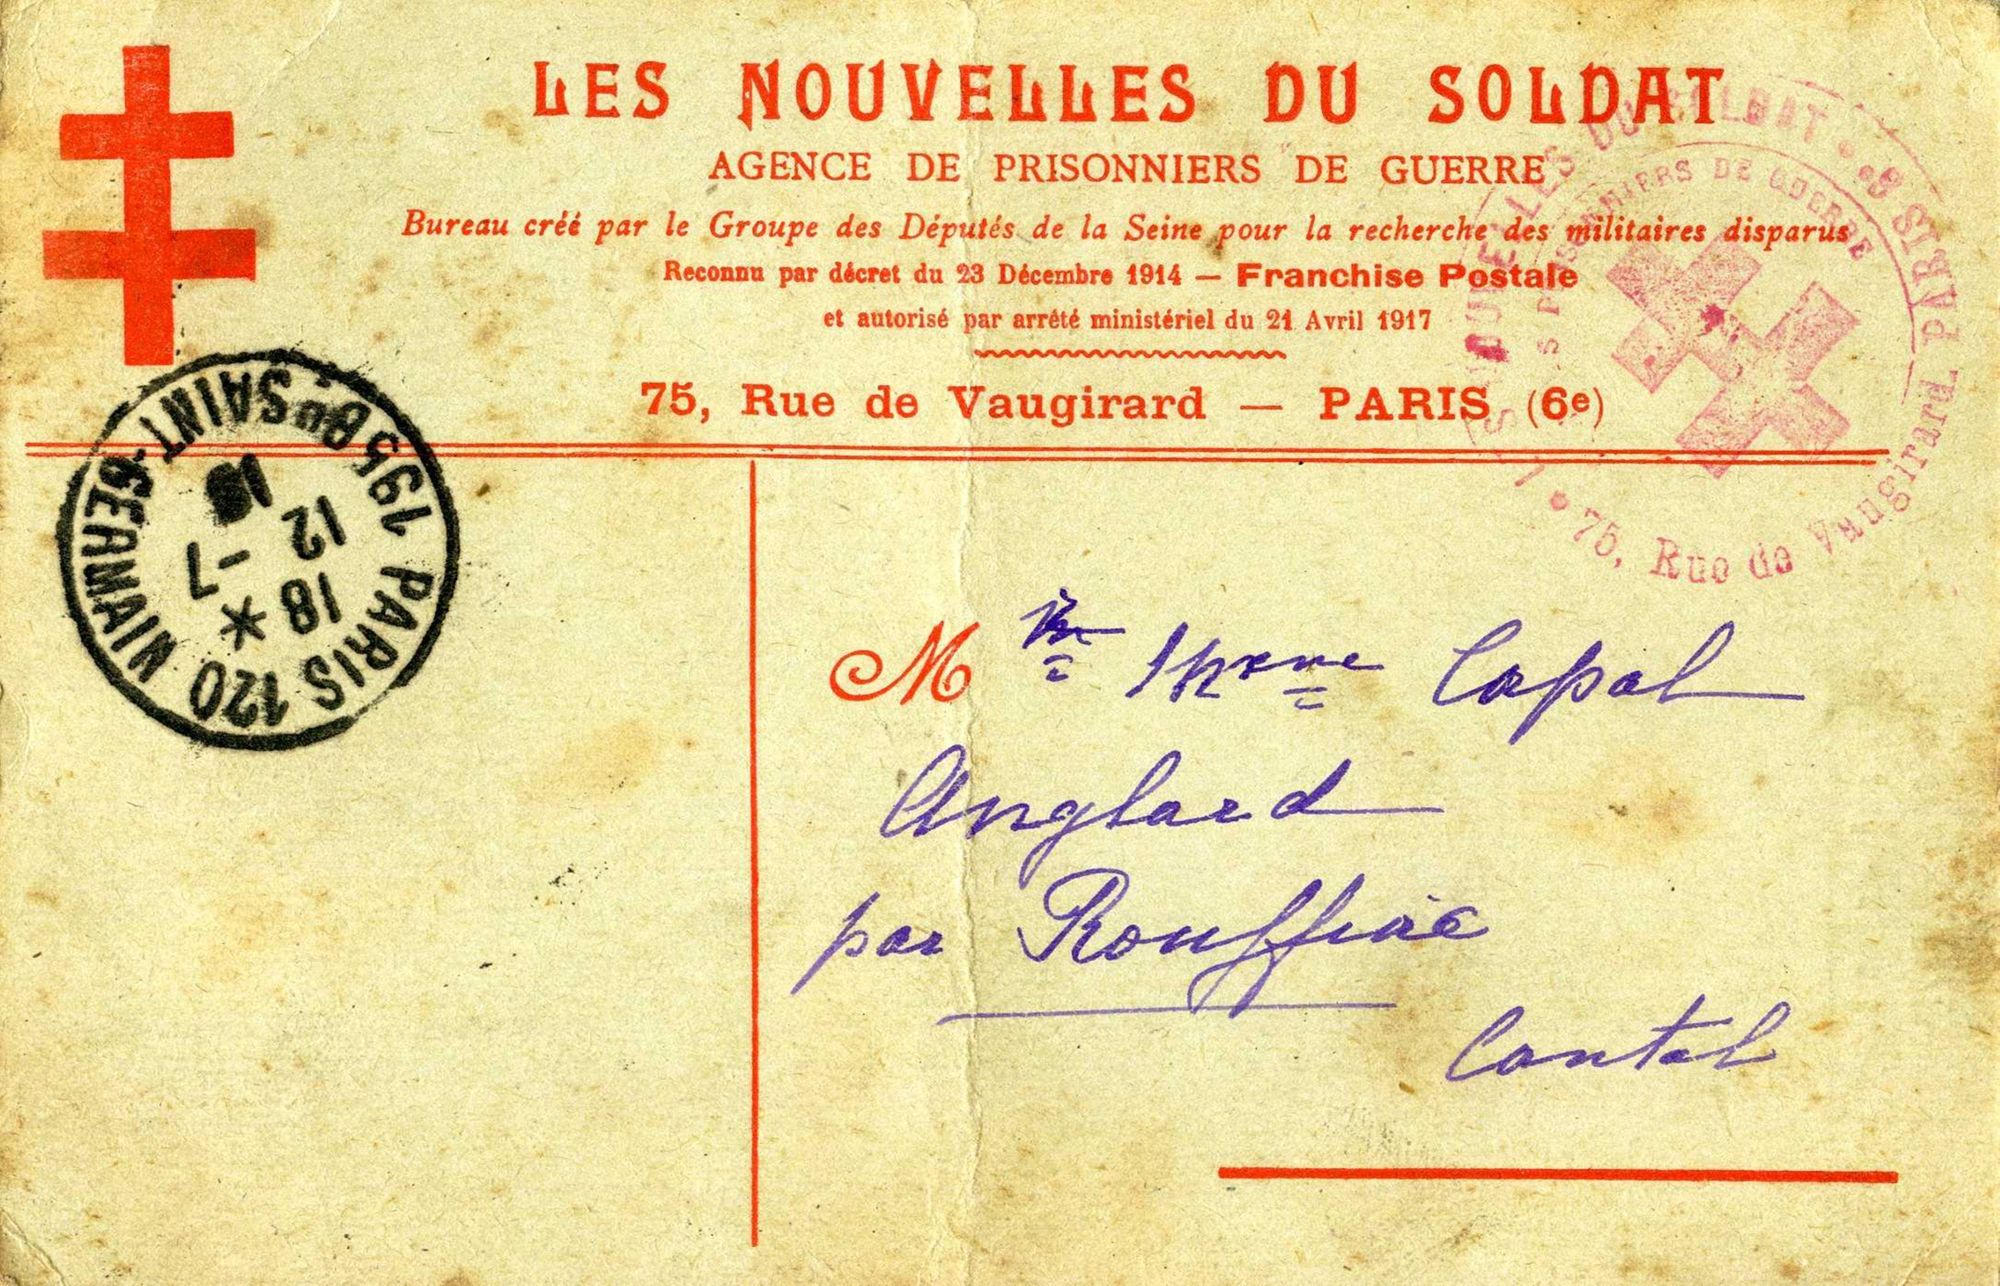 LES NOUVELLES DU SOLDAT
AGENCE DE PRISONNIERS DE GUERRE
Bureau créé par le Groupe des Députés de la Seine pour la recherche des militaires disparus
Reconnu par décret du 23 Décembre 1914 — Franchise Postale
et autorisé par arrêté ministériel du 21 Avril 1917
75, Rue de Vaugirard — PARIS (6e)
LES NOUVELLES DU SOLDAT
PRISONNIERS DE GUERRE
PARIS
75, Rue de Vaugirard
PARIS 120
195 Bd SAINT-GERMAIN
18 *
12 - 7
18
M Capel
Anglard
par Rouffiac
Cantal